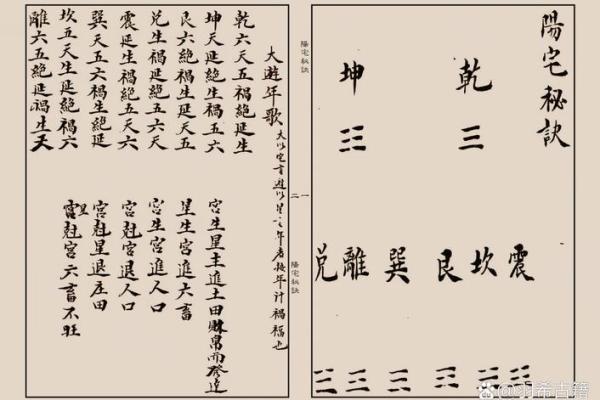 陽宅秘訣
乾 ☰
坤 ☷
震
坎
艮
巽
離
兌
陽宅秘訣
一
二
陽宅秘訣
大遊年歌 大以宅言遊以星言年者按年計禍福也
乾六天五禍絕延生
坤天延絕生禍五六
艮六絕禍生延天五
兌生禍延絕五六天
震延生禍絕五天六
巽天五六禍生絕延
坎五天生延絕禍六
離六五絕延禍生天
宮生星主進土田財帛而發達
星生宮進六畜
宮生宮進人口
宮尅宮退人口
宮尅星退庄田
星尅宮六畜不旺
羽希古籍